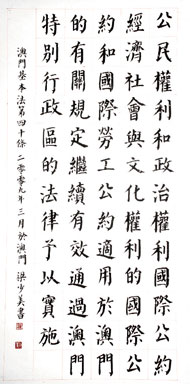 公民權利和政治權利國際公約
經濟社會與文化權利的國際公
約和國際勞工公約適用於澳門
的有關規定繼續有效通過澳門
特別行政區的法律予以實施
澳門基本法第四十條 二零零九年三月於澳門 梁少書